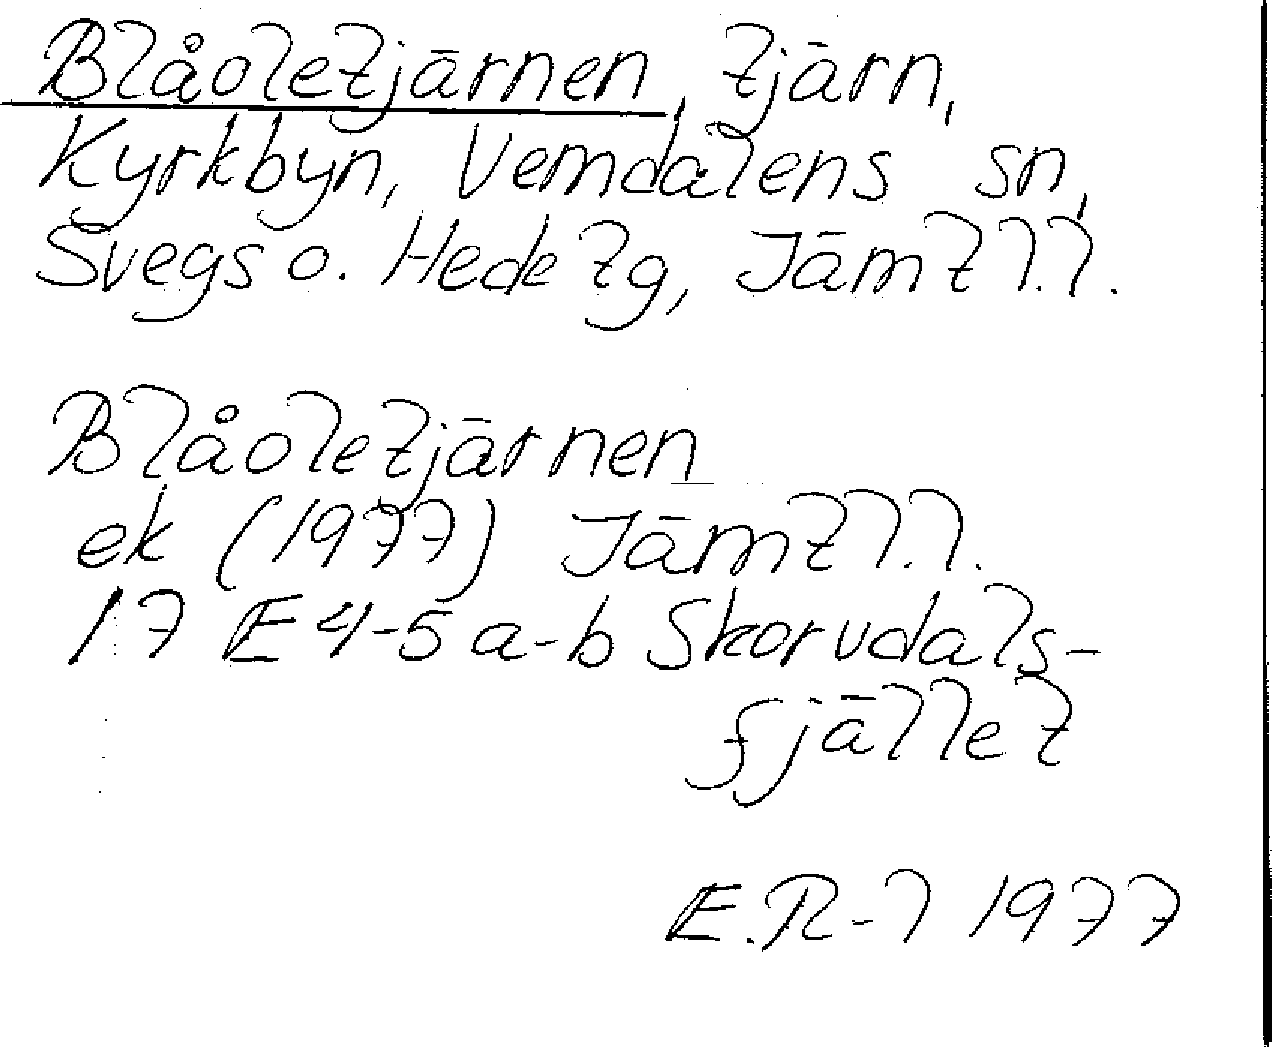 Blåoletjärnen, tjärn,
Kyrkbyn, Vemdalens sn,
Svegs o. Hede tg, Jämtl.l.
Blåoletjärnen
ek (1977) Jämtl.l.
17 E 4-5 a-b Skorvdals-
fjället
E.R-l 1977